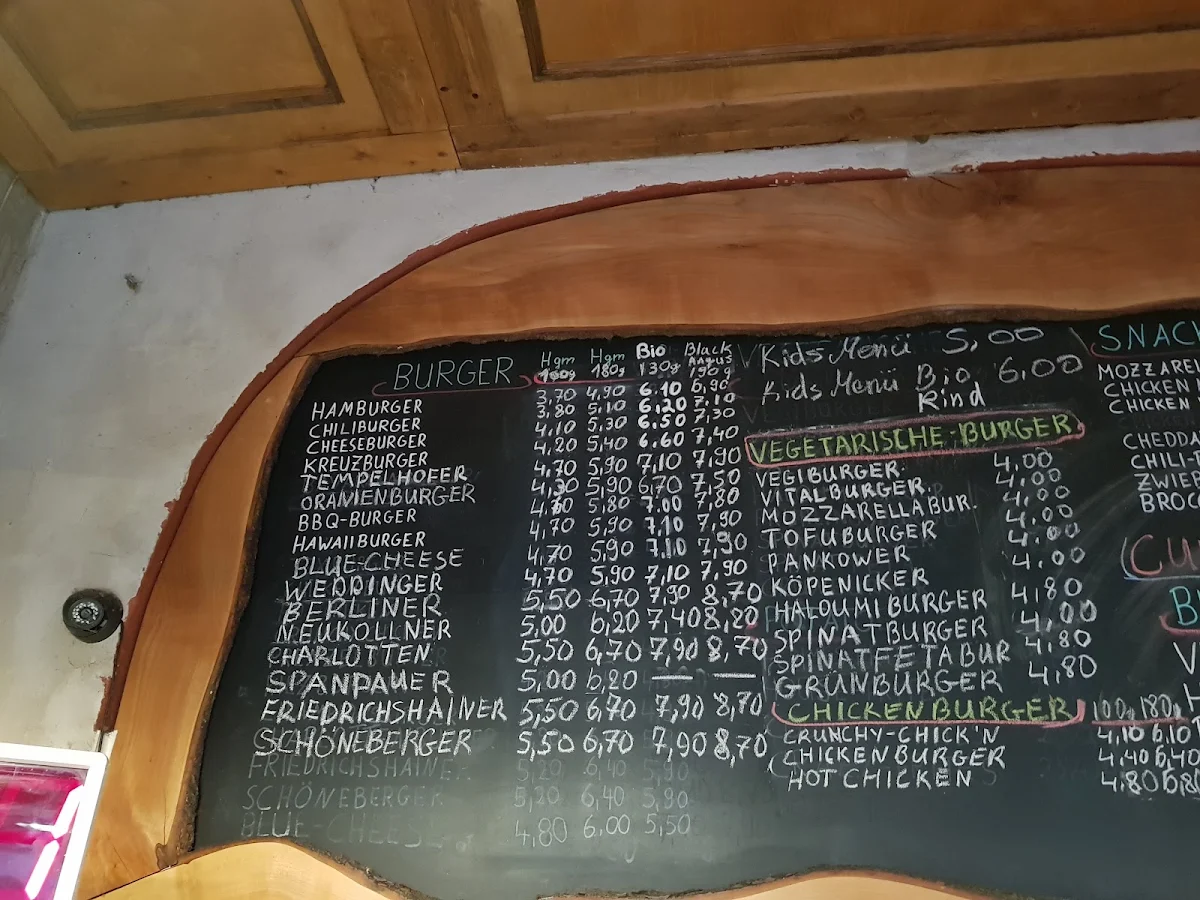 BURGER Hgm 100g Hgm 180g Bio 130g Black Angus 190g
HAMBURGER 3,70 4,90 6.10 6,90
CHILIBURGER 3,80 5,10 6.20 7.10
CHEESEBURGER 4,10 5,30 6.50 7,30
KREUZBURGER 4,20 5,40 6.60 7,40
TEMPELHOFER 4,70 5,90 7,10 7,90
ORANIENBURGER 4,30 5,90 6,70 7,50
BBQ-BURGER 4,60 5,80 7.00 7,80
HAWAIIBURGER 4,70 5,90 7,10 7,90
BLUE-CHEESE 4,70 5,90 7,10 7,90
WEDDINGER 4,70 5,90 7,10 7,90
BERLINER 5,50 6,70 7,90 8,70
NEUKÖLLNER 5,00 6,20 7,40 8,20
CHARLOTTEN 5,50 6,70 7,90 8,70
SPANDAUER 5,00 6,20 — —
FRIEDRICHSHAINER 5,50 6,70 7,90 8,70
SCHÖNEBERGER 5,50 6,70 7,90 8,70
FRIEDRICHSHAINER 5,20 6,40 5,90
SCHÖNEBERGER 5,20 6,40 5,90
BLUE-CHEESE 4,80 6,00 5,50
Kids Menü 5,00
Kids Menü Bio 6,00
Rind
VEGETARISCHE-BURGER
VEGIBURGER 4,00
VITALBURGER 4,00
MOZZARELLABUR. 4,00
TOFUBURGER 4,00
PANKOWER 4,00
KÖPENICKER 4,00
HALOUMIBURGER 4,80
SPINATBURGER 4,00
SPINATFETABUR 4,80
GRÜNBURGER 4,80
CHICKENBURGER 100g 180g
CRUNCHY-CHICK'N 4,10 6,10
CHICKENBURGER 4,40 6,40
HOT CHICKEN 4,80 6,80
SNAC
MOZZAREL
CHICKEN
CHICKEN
CHEDDA
CHILI-
ZWIE
BROC
CU